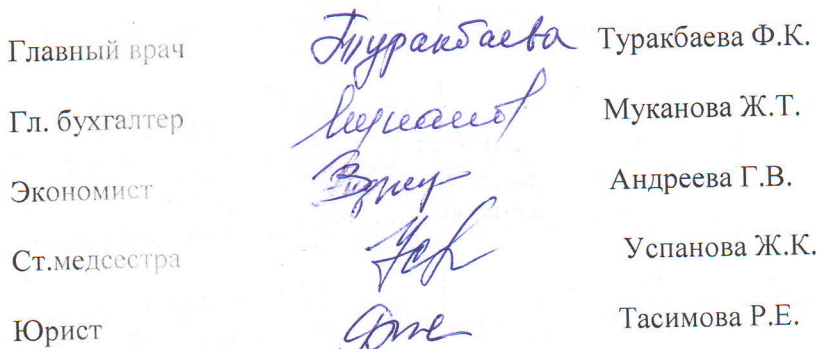 Главный врач Туракбаева Туракбаева Ф.К.
Гл. бухгалтер Муканова Ж.Т.
Экономист Андреева Г.В.
Ст.медсестра Успанова Ж.К.
Юрист Тасимова Р.Е.